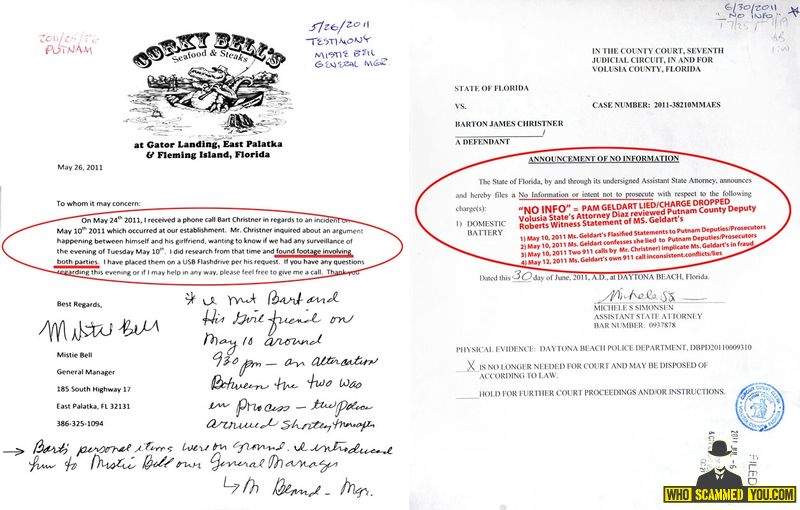 2011/05/26
PUTNAM
5/26/2011
TESTIMONY
MISTIE BELL
GENERAL MGR
CORKY BELL'S
Seafood & Steaks
at Gator Landing, East Palatka
& Fleming Island, Florida
May 26, 2011
To whom it may concern:
On May 24th 2011, I received a phone call Bart Christner in regards to an incident on
May 10th 2011 which occurred at our establishment. Mr. Christner inquired about an argument
happening between himself and his girlfriend, wanting to know if we had any surveillance of
the evening of Tuesday May 10th. I did research from that time and found footage involving
both parties. I have placed them on a USB Flashdrive per his request. If you have any questions
regarding this evening or if I may help in any way, please feel free to give me a call. Thank you
Best Regards,
Mistie Bell
Mistie Bell
General Manager
185 South Highway 17
East Palatka, FL 32131
386-325-1094
* I met Bart and
His Girl friend on
May 10 around
930 pm — an altercation
Between the two was
in process — the police
arrived shortly thereafter
→ Bart's personal items were on ground. I introduced
him to Mistie Bell our General Manager
↳ M Mgr.
6/30/2011
"NO INFO"
IN THE COUNTY COURT, SEVENTH
JUDICIAL CIRCUIT, IN AND FOR
VOLUSIA COUNTY, FLORIDA
STATE OF FLORIDA
VS.
CASE NUMBER: 2011-38210MMAES
BARTON JAMES CHRISTNER
/
A DEFENDANT
ANNOUNCEMENT OF NO INFORMATION
The State of Florida, by and through its undersigned Assistant State Attorney, announces
and hereby files a No Information or intent not to prosecute with respect to the following
charge(s):
"NO INFO" = PAM GELDART LIED/CHARGE DROPPED
Volusia State's Attorney Diaz reviewed Putnam County Deputy
Roberts Witness Statement of MS. Geldart's
1) DOMESTIC
BATTERY
1) May 10, 2011 Ms. Geldart's Flasified Statements to Putnam Deputies/Prosecutors
2) May 10, 2011 Ms. Geldart confesses she lied to Putnam Deputies/Prosecutors
3) May 10, 2011 Two 911 calls by Mr. Christner) implicate Ms. Geldart's in fraud
4) May 12, 2011 Ms. Geldart's own 911 call inconsistent.conflicts/lies
Dated this 30 day of June, 2011, A.D., at DAYTONA BEACH, Florida.
MICHELE S SIMONSEN
ASSISTANT STATE ATTORNEY
BAR NUMBER: 0937878
PHYSICAL EVIDENCE: DAYTONA BEACH POLICE DEPARTMENT, DBPD20110009310
X IS NO LONGER NEEDED FOR COURT AND MAY BE DISPOSED OF
ACCORDING TO LAW.
HOLD FOR FURTHER COURT PROCEEDINGS AND/OR INSTRUCTIONS.
FILED
WHO SCAMMED YOU.COM